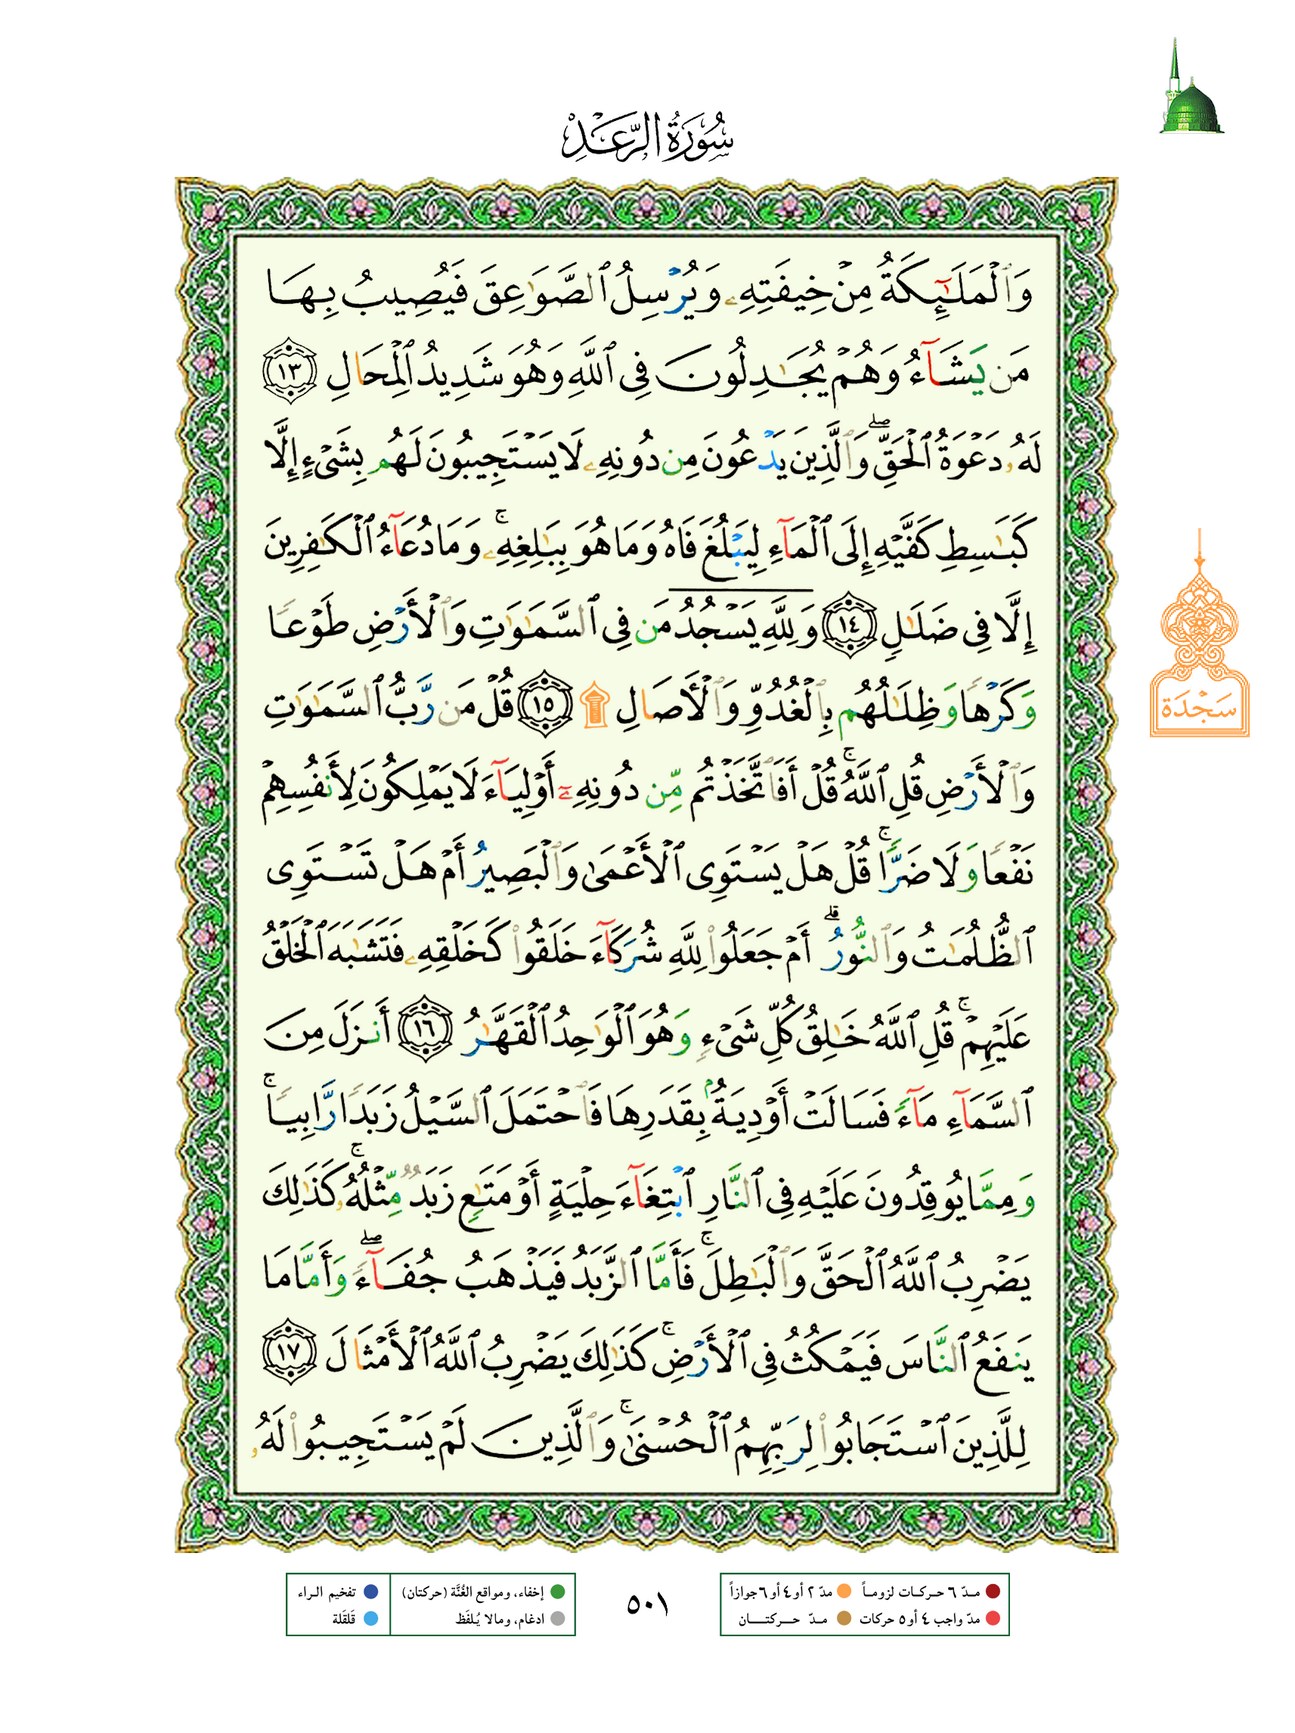 سُورَةُ الرَّعْدِ
وَٱلْمَلَٰٓئِكَةُ مِنْ خِيفَتِهِۦ وَيُرْسِلُ ٱلصَّوَٰعِقَ فَيُصِيبُ بِهَا
مَن يَشَآءُ وَهُمْ يُجَٰدِلُونَ فِى ٱللَّهِ وَهُوَ شَدِيدُ ٱلْمِحَالِ ١٣
لَهُۥ دَعْوَةُ ٱلْحَقِّ ۖ وَٱلَّذِينَ يَدْعُونَ مِن دُونِهِۦ لَا يَسْتَجِيبُونَ لَهُم بِشَىْءٍ إِلَّا
كَبَٰسِطِ كَفَّيْهِ إِلَى ٱلْمَآءِ لِيَبْلُغَ فَاهُ وَمَا هُوَ بِبَٰلِغِهِۦ ۚ وَمَا دُعَآءُ ٱلْكَٰفِرِينَ
إِلَّا فِى ضَلَٰلٍ ١٤ وَلِلَّهِ يَسْجُدُ مَن فِى ٱلسَّمَٰوَٰتِ وَٱلْأَرْضِ طَوْعًا
وَكَرْهًا وَظِلَٰلُهُم بِٱلْغُدُوِّ وَٱلْـَٔاصَالِ ۩ ١٥ قُلْ مَن رَّبُّ ٱلسَّمَٰوَٰتِ
سَجْدَة
وَٱلْأَرْضِ قُلِ ٱللَّهُ ۚ قُلْ أَفَٱتَّخَذْتُم مِّن دُونِهِۦٓ أَوْلِيَآءَ لَا يَمْلِكُونَ لِأَنفُسِهِمْ
نَفْعًا وَلَا ضَرًّا ۚ قُلْ هَلْ يَسْتَوِى ٱلْأَعْمَىٰ وَٱلْبَصِيرُ أَمْ هَلْ تَسْتَوِى
ٱلظُّلُمَٰتُ وَٱلنُّورُ ۗ أَمْ جَعَلُوا۟ لِلَّهِ شُرَكَآءَ خَلَقُوا۟ كَخَلْقِهِۦ فَتَشَٰبَهَ ٱلْخَلْقُ
عَلَيْهِمْ ۚ قُلِ ٱللَّهُ خَٰلِقُ كُلِّ شَىْءٍ وَهُوَ ٱلْوَٰحِدُ ٱلْقَهَّٰرُ ١٦ أَنزَلَ مِنَ
ٱلسَّمَآءِ مَآءً فَسَالَتْ أَوْدِيَةٌۢ بِقَدَرِهَا فَٱحْتَمَلَ ٱلسَّيْلُ زَبَدًا رَّابِيًا ۚ
وَمِمَّا يُوقِدُونَ عَلَيْهِ فِى ٱلنَّارِ ٱبْتِغَآءَ حِلْيَةٍ أَوْ مَتَٰعٍ زَبَدٌ مِّثْلُهُۥ ۚ كَذَٰلِكَ
يَضْرِبُ ٱللَّهُ ٱلْحَقَّ وَٱلْبَٰطِلَ ۚ فَأَمَّا ٱلزَّبَدُ فَيَذْهَبُ جُفَآءً ۖ وَأَمَّا مَا
يَنفَعُ ٱلنَّاسَ فَيَمْكُثُ فِى ٱلْأَرْضِ ۚ كَذَٰلِكَ يَضْرِبُ ٱللَّهُ ٱلْأَمْثَالَ ١٧
لِلَّذِينَ ٱسْتَجَابُوا۟ لِرَبِّهِمُ ٱلْحُسْنَىٰ ۚ وَٱلَّذِينَ لَمْ يَسْتَجِيبُوا۟ لَهُۥ
مـدّ ٦ حـركـات لزومـاً مدّ ٢ أو ٤ أو ٦ جوازاً
مدّ واجب ٤ أو ٥ حركات مـدّ حـــركتــــان
٥٠١
إخفاء، ومواقع الغُنَّة (حركتان) تفخيم الـراء
ادغام، ومالا يُـلفَظ قَلقَلة